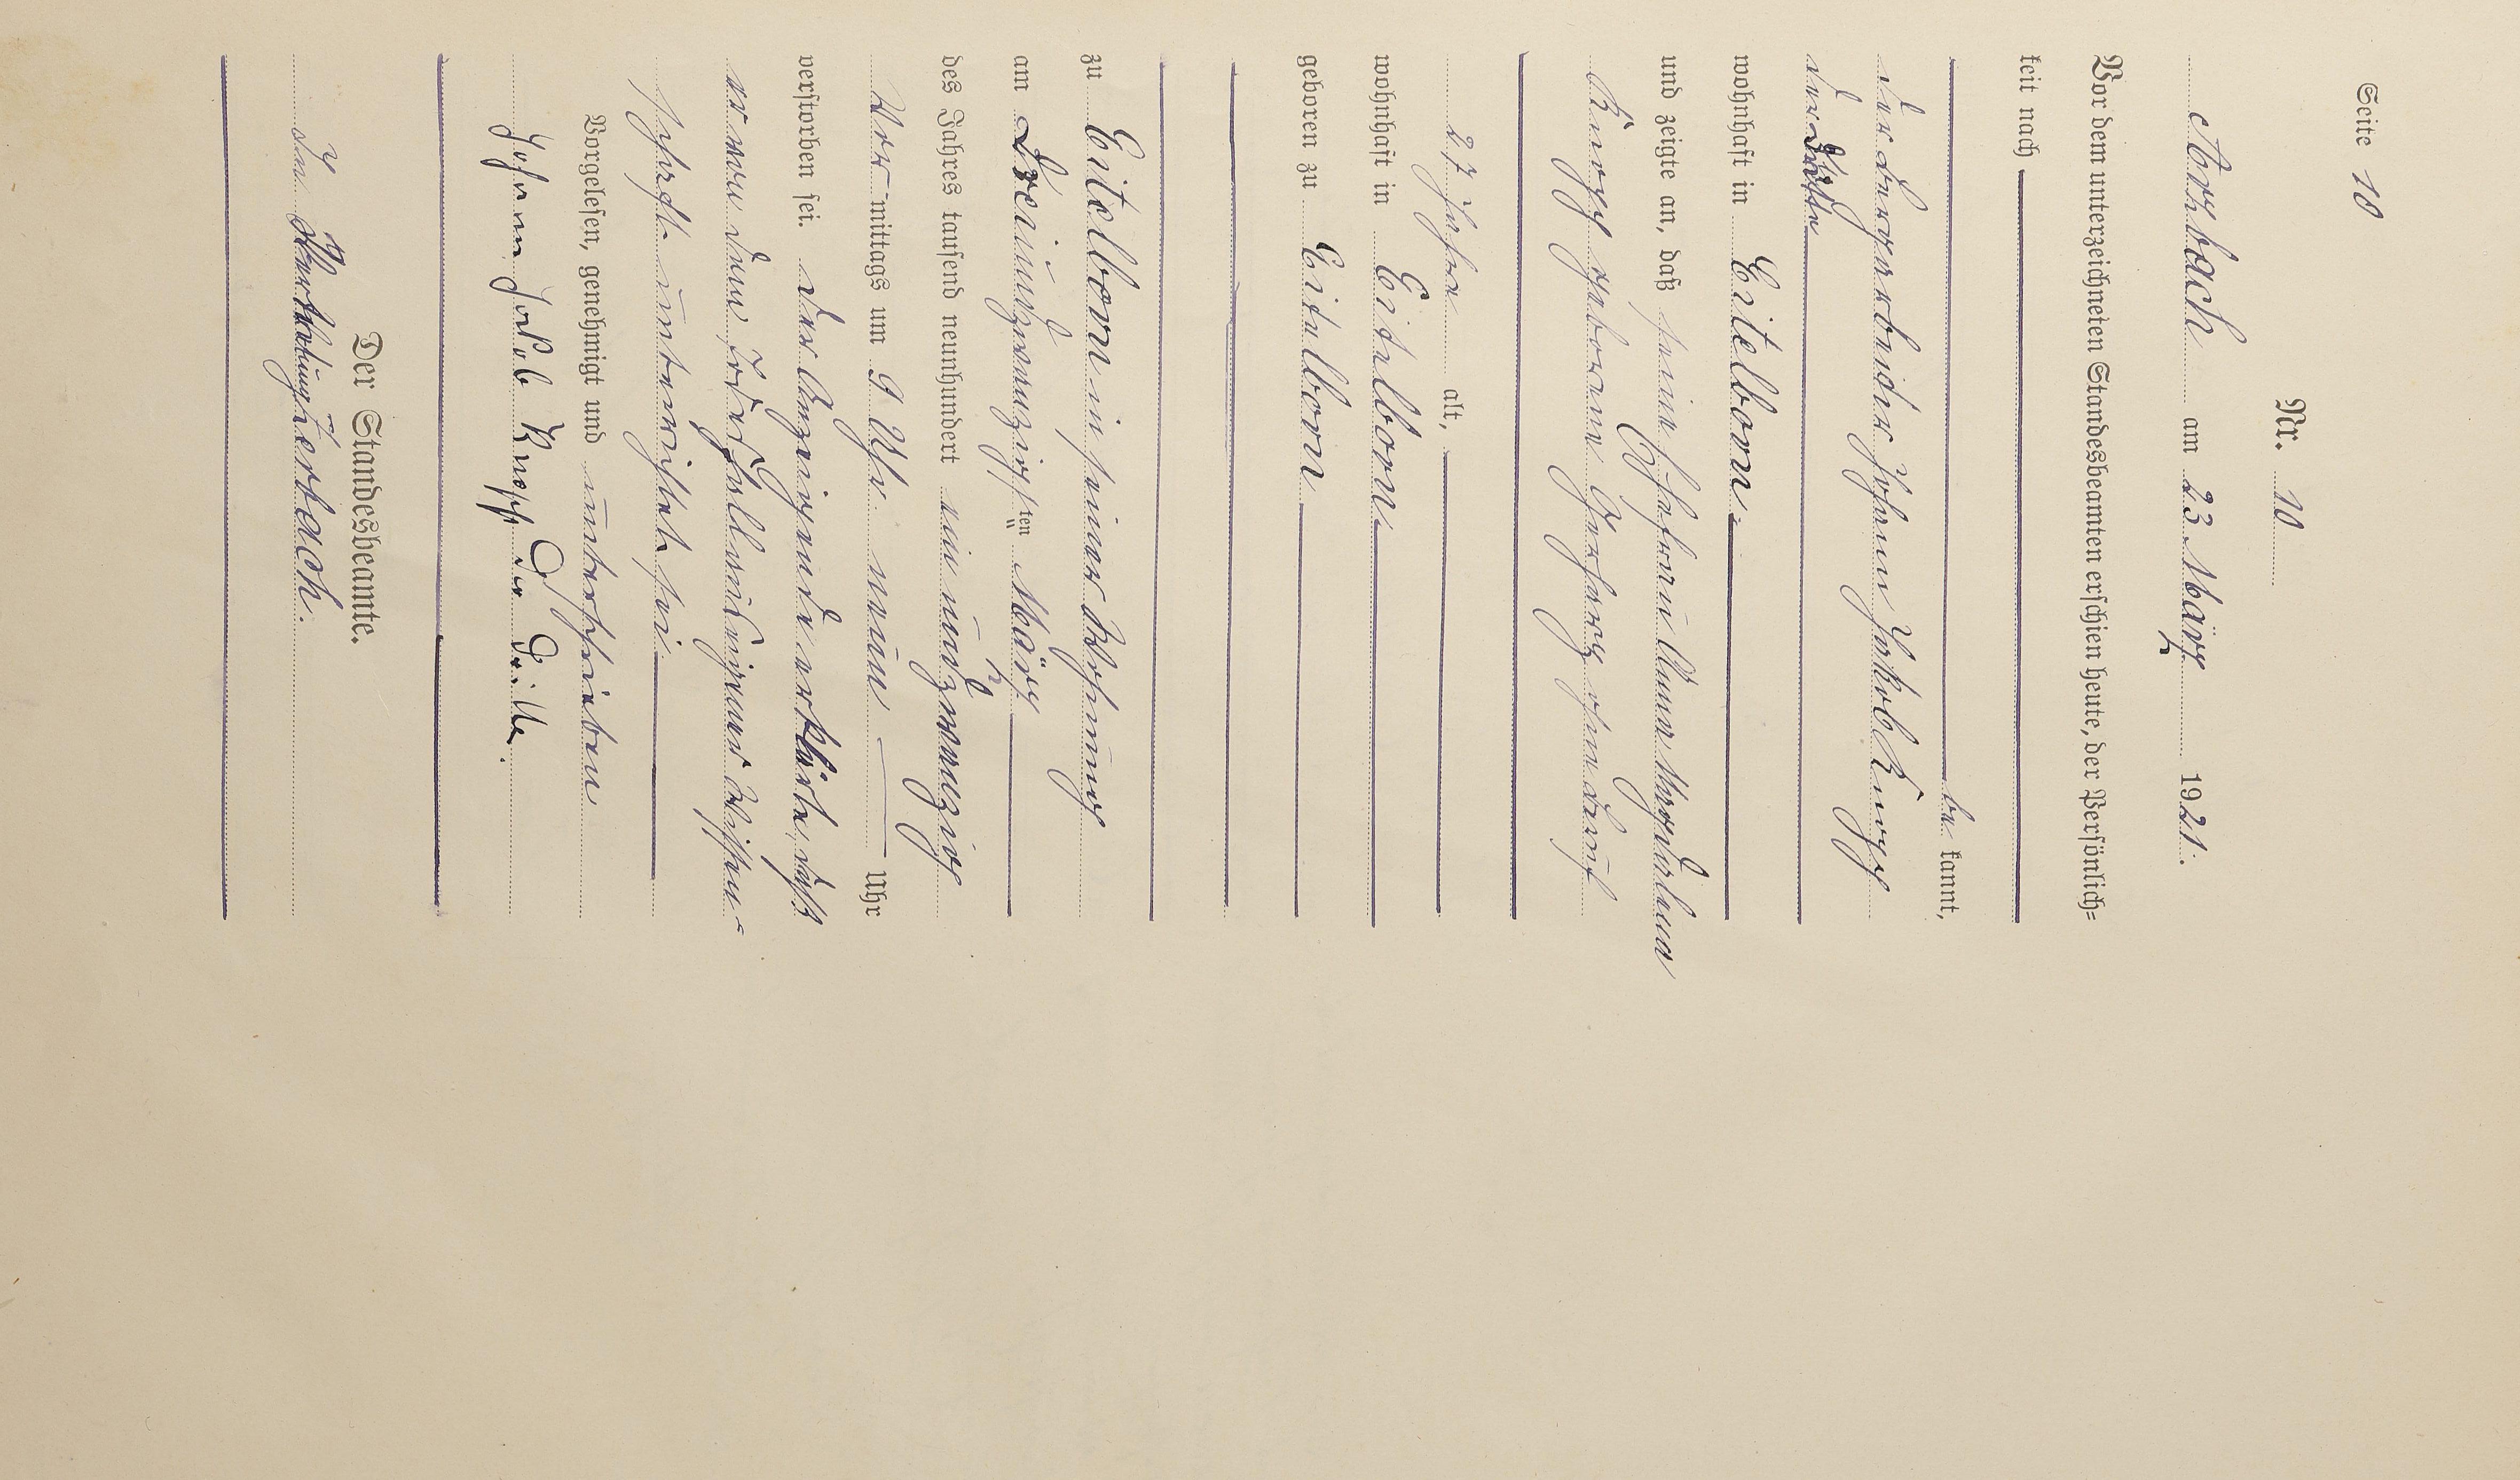 Seite 10
Nr. 10
Arzbach am 23. März 1921.
Vor dem unterzeichneten Standesbeamten erschien heute, der Persönlich=
keit nach
be kannt,
der Bergarbeider Johann Jakob Knopp
der Dritte
wohnhaft in Eitelborn
und zeigte an, daß seine Ehefrau Anna Magdalena
Knopp geborene Gerharz ohne Beruf
27 Jahre alt,
wohnhaft in Eitelborn
geboren zu Eitelborn
zu Eitelborn in seiner Wohnung
am Dreiundzwanzigsten März
des Jahres tausend neunhundert ein und zwanzig
Vor=mittags um 9 Uhr neun Uhr
verstorben sei. Der Anzeigende erklärte, daß
er von dem Todesfall aus eigener Wissen=
schaft unterrichtet sei.
Vorgelesen, genehmigt und unterschrieben
Johann Jakob Knopp der Dritte.
Der Standesbeamte.